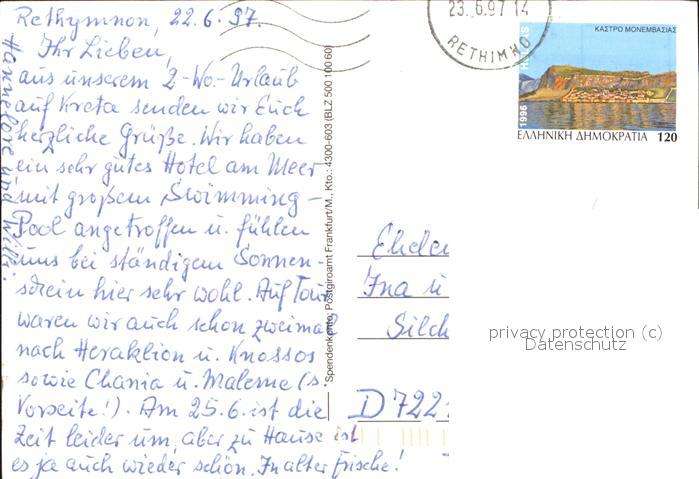 Rethymnon, 22.6.97.
Ihr Lieben,
aus unserem 2-Wo.-Urlaub
auf Kreta senden wir Euch
herzliche Grüße. Wir haben
ein sehr gutes Hotel am Meer
mit großem Swimming-
Pool angetroffen u. fühlen
uns bei ständigem Sonnen-
schein hier sehr wohl. Auf Tour
waren wir auch schon zweimal
nach Heraklion u. Knossos
sowie Chania u. Maleme (s.
Vorseite!). Am 25.6. ist die
Zeit leider um, aber zu Hause ist
es ja auch wieder schön. In alter Frische!
Hannelore und Willi
*Spendenkonto, Postgiroamt Frankfurt/M., Kto.: 4300-603 (BLZ 500 100 60)
23.6.97 14
RETHIMNO
ΚΑΣΤΡΟ ΜΟΝΕΜΒΑΣΙΑΣ
HELLAS
1996
ΕΛΛΗΝΙΚΗ ΔΗΜΟΚΡΑΤΙΑ 120
Ina u
Silch
D 722
privacy protection (c)
Datenschutz